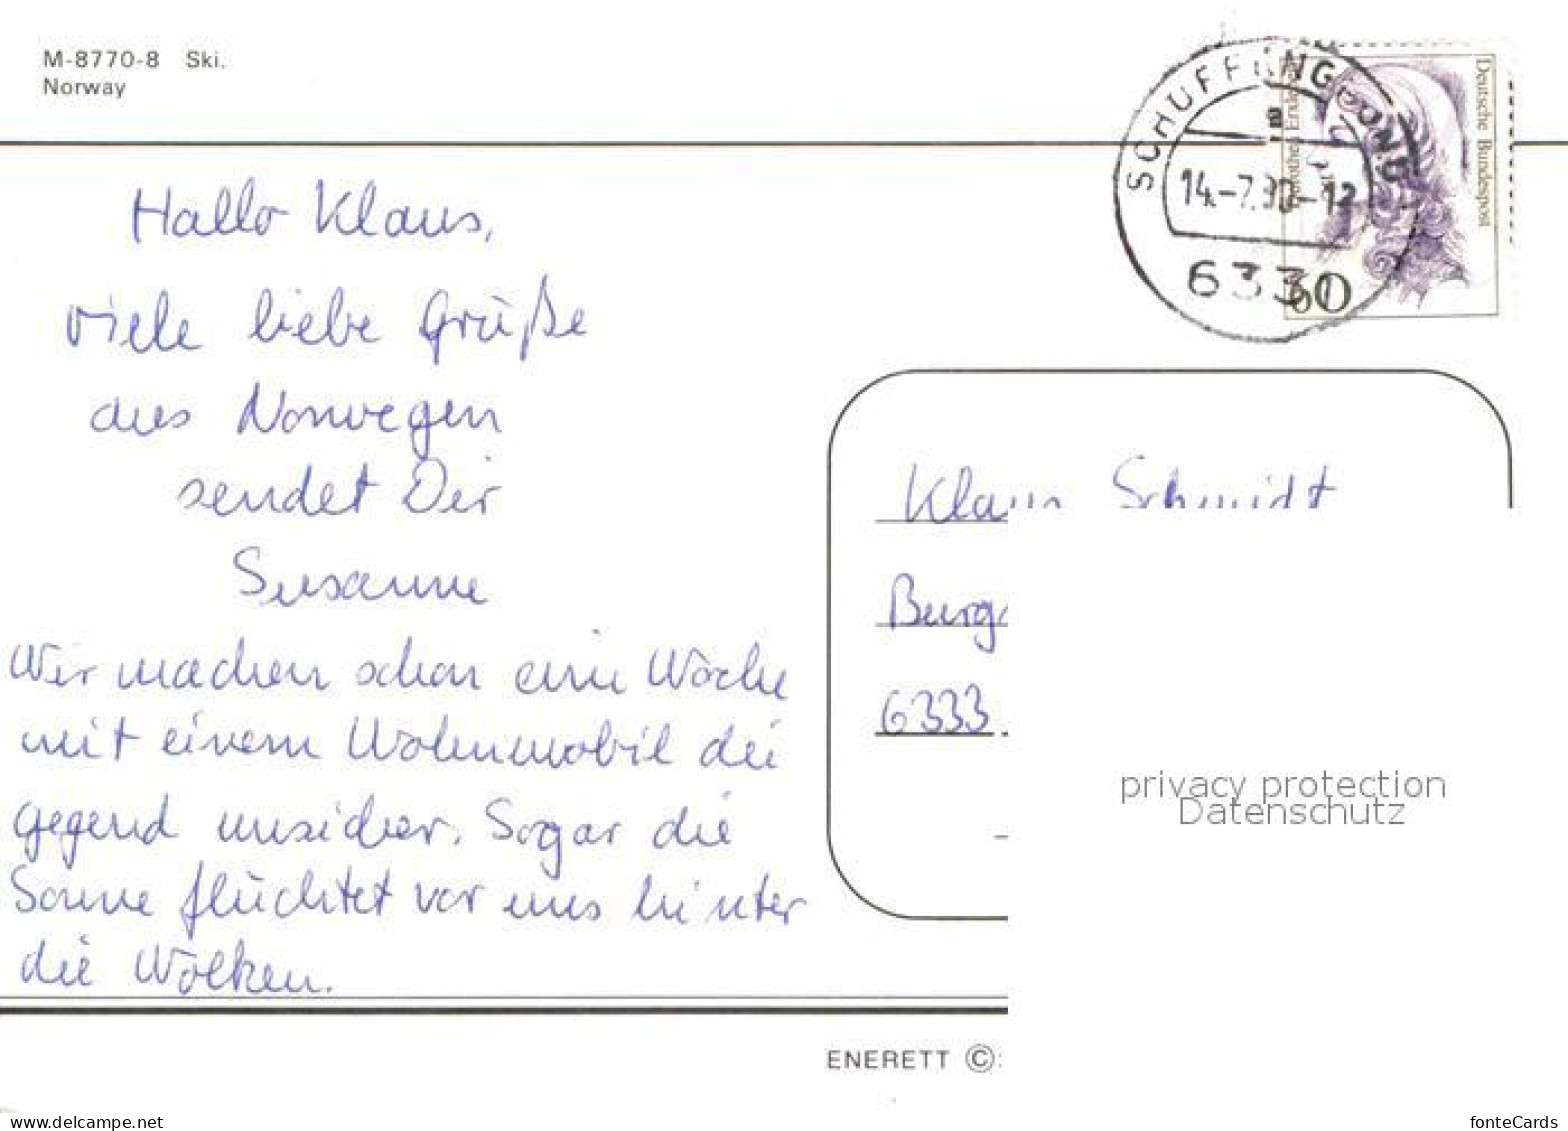 M-8770-8 Ski.
Norway
Deutsche Bundespost
14.-7.90-12
60
Hallo Klaus,
viele liebe Grüße
aus Norwegen
sendet Dir
Susanne
Wir machen schon eine Woche
mit einem Wohnmobil die
gegend unsicher. Sogar die
Sonne flüchtet vor uns hinter
die Wolken.
Klaus Schmidt
6333
privacy protection
Datenschutz
ENERETT ©
www.delcampe.net
fonteCards